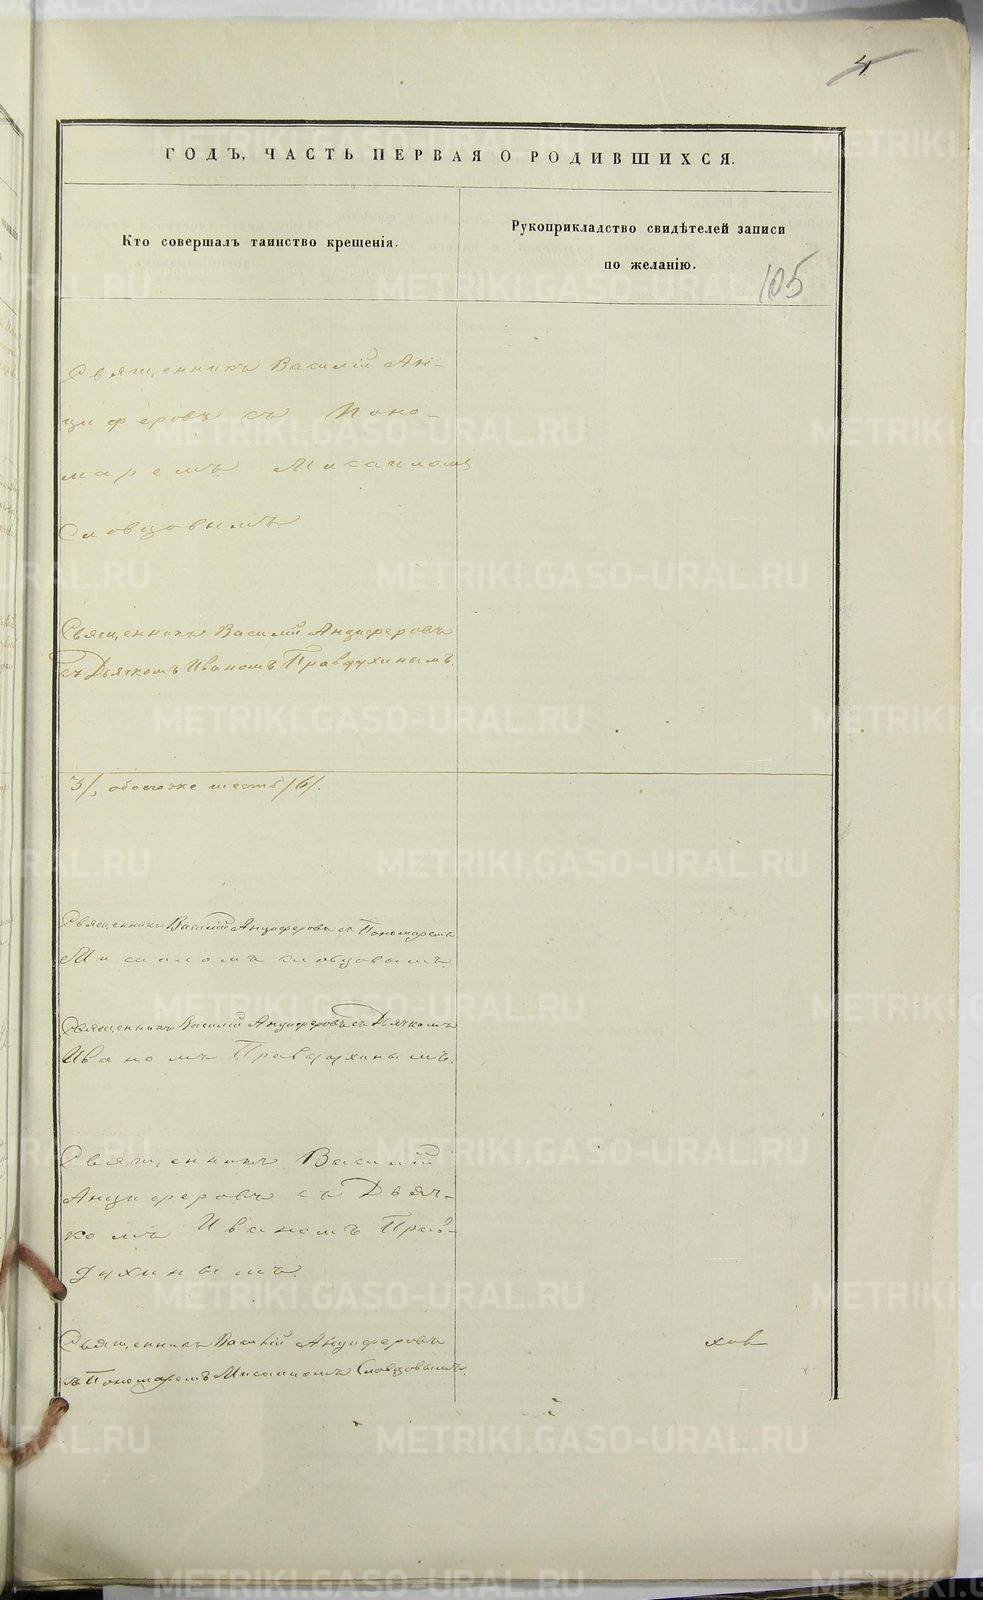 4
ГОДЪ, ЧАСТЬ ПЕРВАЯ О РОДИВШИХСЯ.
Кто совершалъ таинство крещенія.
Рукоприкладство свидѣтелей записи
по желанію.
105
Священникъ Василій Ан-
циферовъ съ Поно-
маремъ Мисаиломъ
Словцовымъ.
Священникъ Василій Анциферовъ
съ Дьячкомъ Иваномъ Правдухинымъ.
3/, обоего же шесть /6/.
Священникъ Василій Анциферовъ съ Пономаремъ
Мисаиломъ Словцовымъ.
Священникъ Василій Анциферовъ съ Дьячкомъ
Иваномъ Правдухинымъ.
Священникъ Василій
Анциферовъ съ Дьяч-
комъ Иваномъ Прав-
духинымъ.
Священникъ Василій Анциферовъ
съ Пономаремъ Мисаиломъ Словцовымъ.
ховъ
METRIKI.GASO-URAL.RU